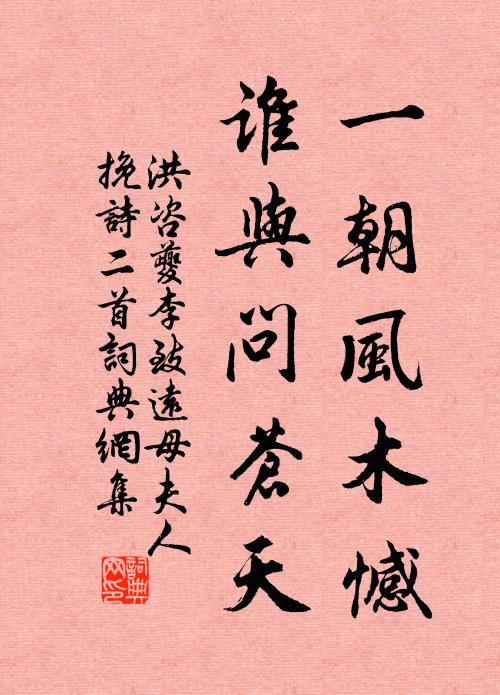 一朝風木憾
誰與問蒼天
洪咨夔李致遠母夫人
挽詩二首詞典網集
詞典網印